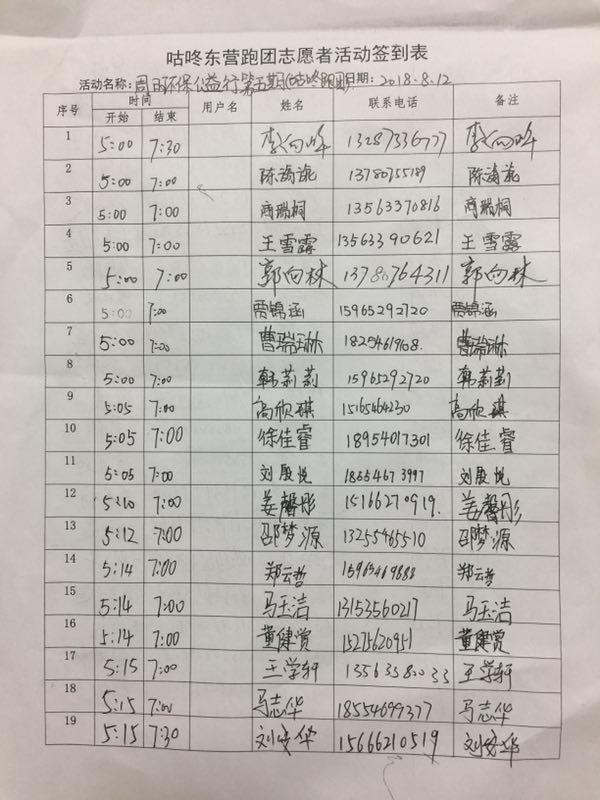 咕咚东营跑团志愿者活动签到表
活动名称：周日环保公益行第五期(咕咚跑团)日期：2018.8.12
序号 时间 用户名 姓名 联系电话 备注
开始 结束
1 5:00 7:30 李向峰 13287336777 李向峰
2 5:00 7:00 陈涛 13780755189 陈涛
3 5:00 7:00 商瑞桐 13563370816 商瑞桐
4 5:00 7:00 王雪露 13563390621 王雪露
5 5:00 7:00 郭向林 13780764311 郭向林
6 5:00 7:00 贾锦涵 15965292720 贾锦涵
7 5:00 7:00 曹瑞琳 18254619108. 曹瑞琳
8 5:00 7:00 韩莉莉 15965292720 韩莉莉
9 5:05 7:00 高欣琪 15165464230 高欣琪
10 5:05 7:00 徐佳睿 18954017301 徐佳睿
11 5:05 7:00 刘殷悦 18554673997 刘殷悦
12 5:10 7:00 姜馨彤 15166270919. 姜馨彤
13 5:12 7:00 邵梦源 13255465510 邵梦源
14 5:14 7:00 郑云哲 郑云哲
15 5:14 7:00 马玉洁 13153560217 马玉洁
16 5:14 7:00 董健赏 15275620951 董健赏
17 5:15 7:00 王学轩 13563580033 王学轩
18 5:15 7:00 马志华 18554699377 马志华
19 5:15 7:30 刘安华 15666210519 刘安华